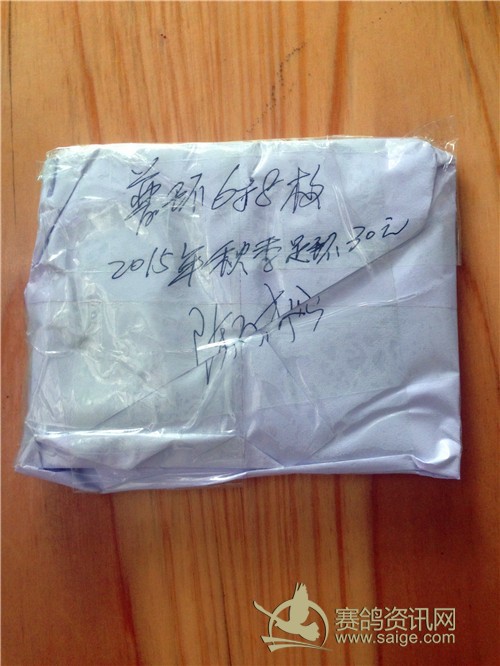 环6+8枚
2015年秋季足环30元
陈
赛鸽资讯网
www.saige.com